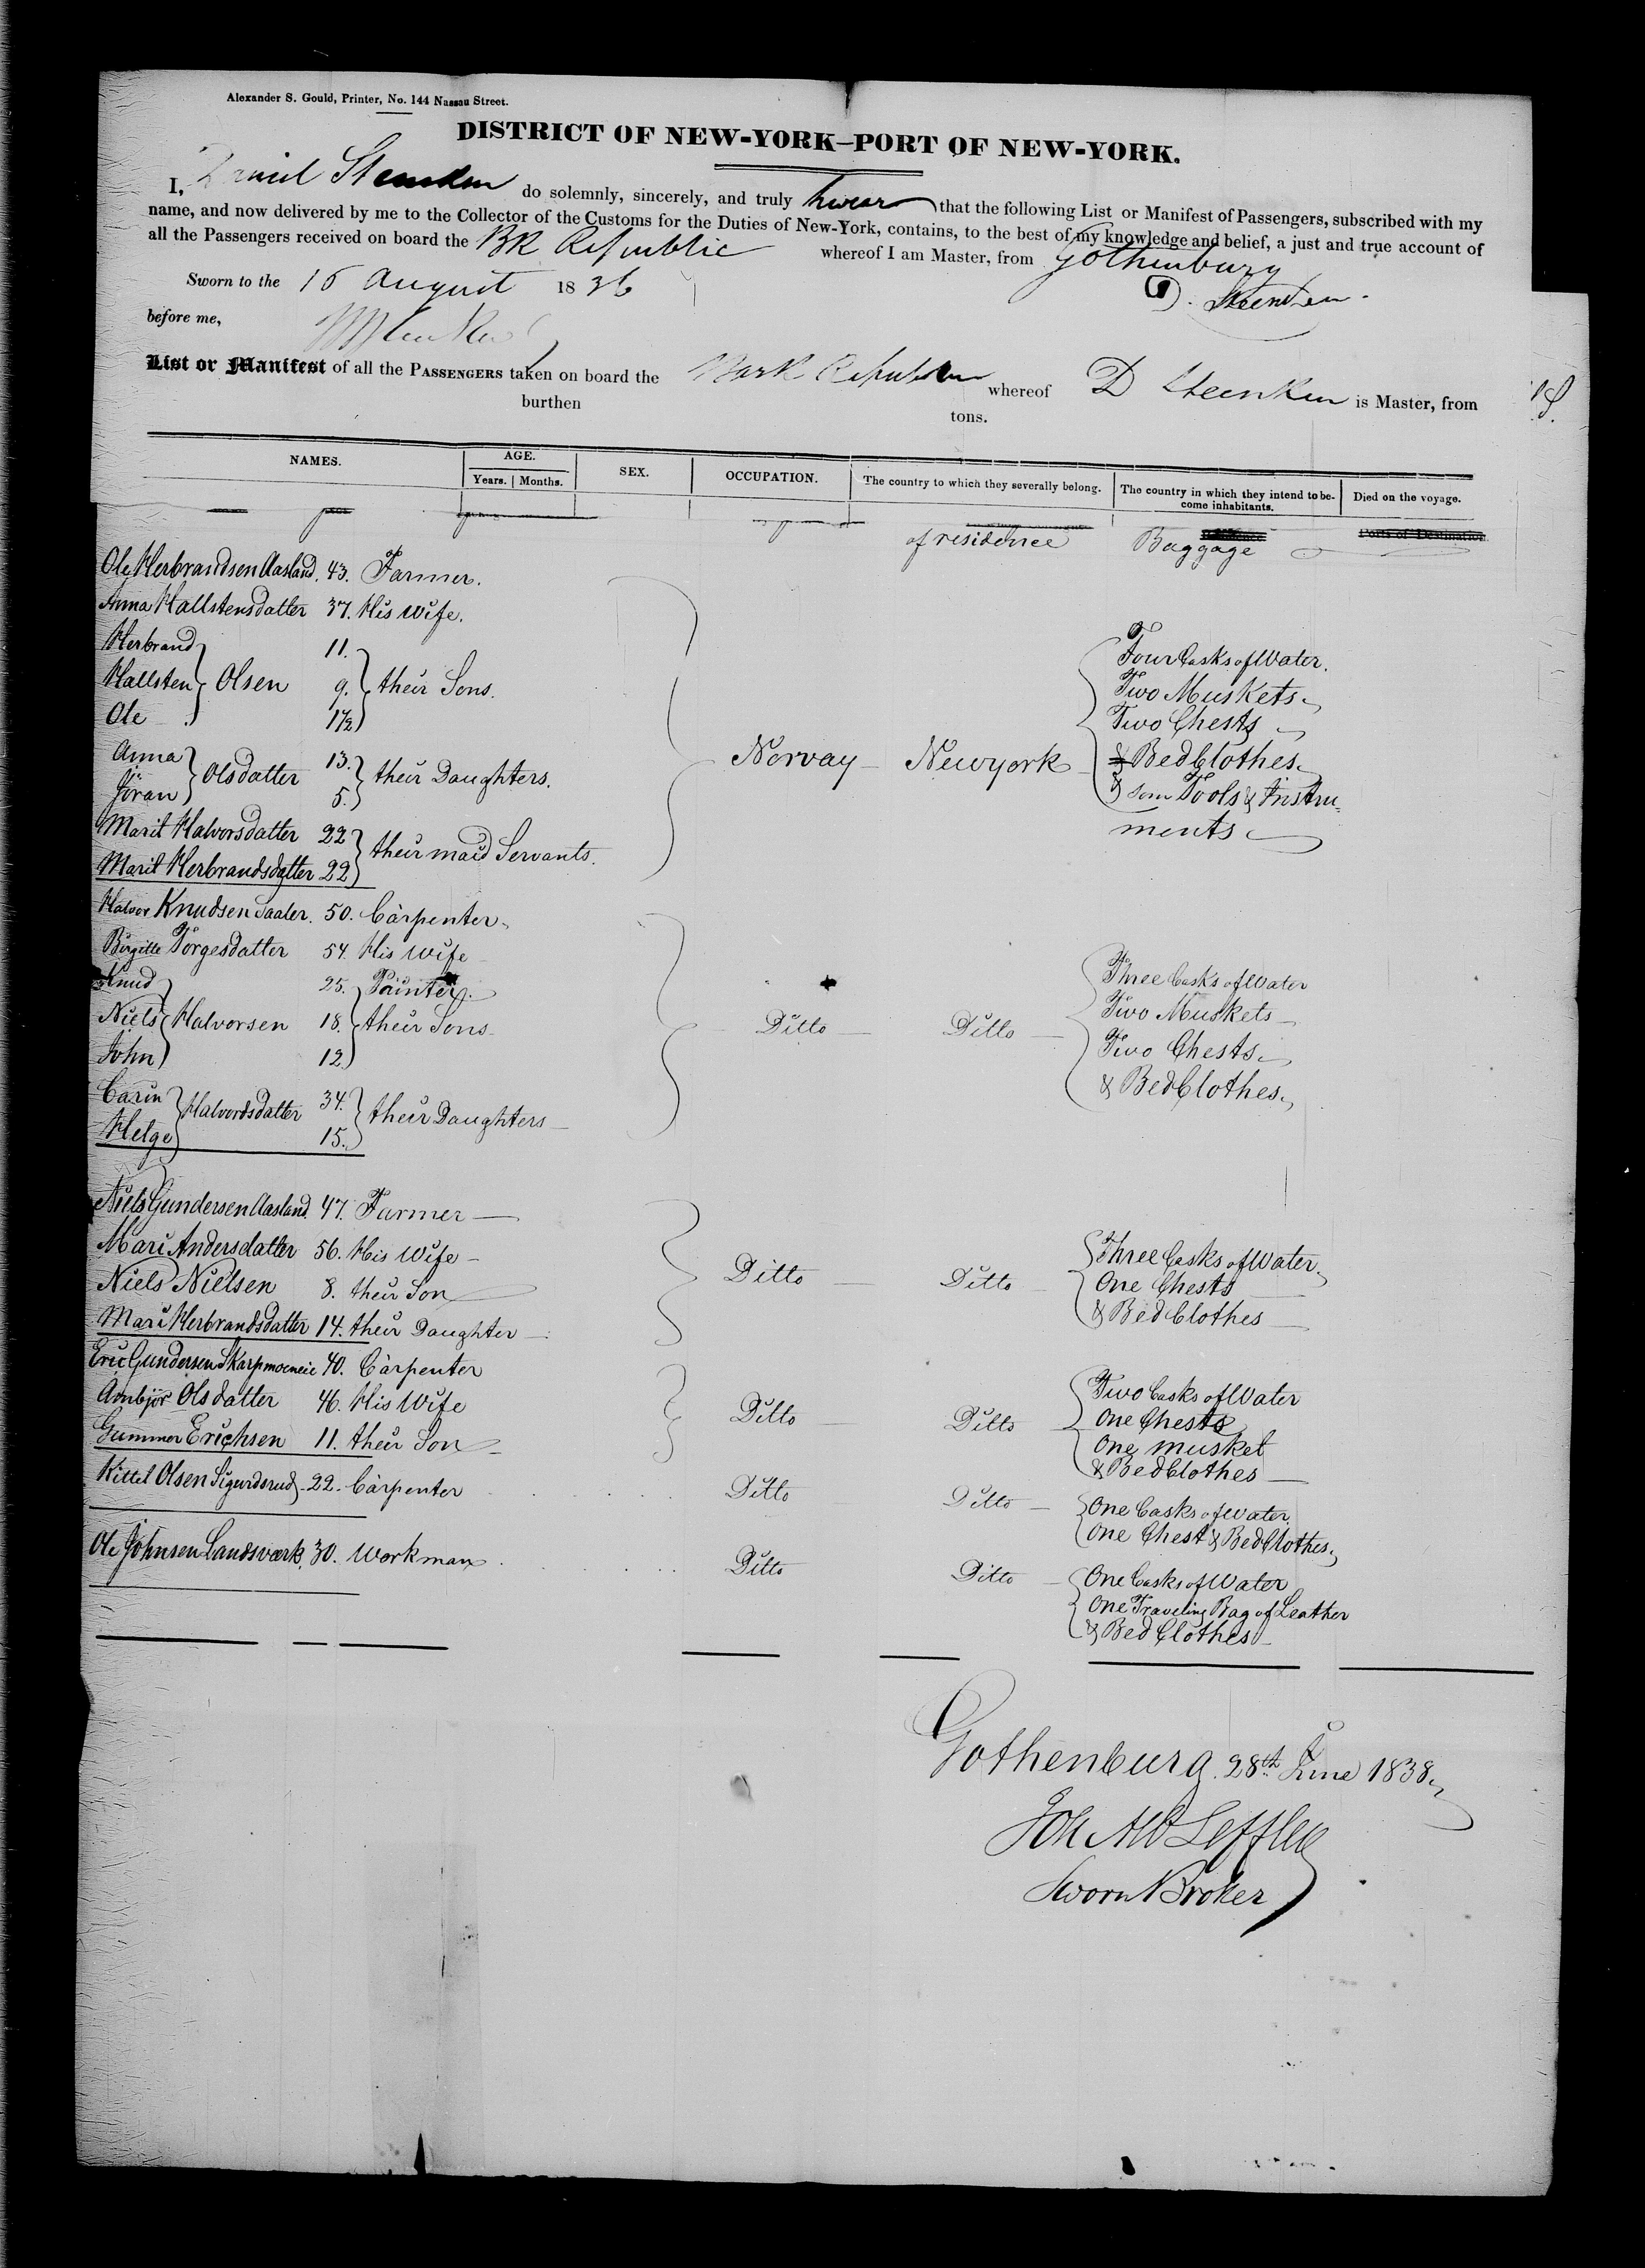 Alexander S. Gould, Printer, No. 144 Nassau Street.
DISTRICT OF NEW-YORK–PORT OF NEW-YORK.
I, Daniel Steenken do solemnly, sincerely, and truly swear that the following List or Manifest of Passengers, subscribed with my
name, and now delivered by me to the Collector of the Customs for the Duties of New-York, contains, to the best of my knowledge and belief, a just and true account of
all the Passengers received on board the BK Republic whereof I am Master, from Gothenburg
Sworn to the 16 August 1838
D. Steenken
before me,
List or Manifest of all the PASSENGERS taken on board the Bark Republic whereof D Steenken is Master, from
burthen tons.
NAMES. AGE. SEX. OCCUPATION. The country to which they severally belong. The country in which they intend to be- Died on the voyage.
Years. Months. come inhabitants.
of residence Baggage
Ole Herbrandsen Aasland. 43. Farmer.
Anna Hallstensdatter 37. His wife.
Herbrand 11.
Hallsten Olsen 9. their Sons.
Ole 1½
Anna 13.
Jöran Olsdatter 5. their Daughters.
Marit Halvorsdatter 22
Marit Herbrandsdatter 22 their maid Servants.
Norvay Newyork
Four Casks of Water.
Two Muskets
Two Chests
& BedClothes
& som Tools & Instru-
ments
Halvor Knudsen Saaler. 50. Carpenter
Birgitte Torgesdatter 54. His wife
Knud 25. Painter.
Niels Halvorsen 18. their Sons
John 12
Carin 34.
Helge Halvordsdatter 15. their Daughters
Ditto Ditto
Three Casks of Water
Two Muskets
Two Chests
& BedClothes
Niels Gundersen Aasland. 47. Farmer
Mari Andersdatter 56. His Wife
Niels Nielsen 8. their Son
Mari Herbrandsdatter 14. their Daughter
Ditto Ditto
Three Casks of Water
One Chests
& BedClothes
Eric Gundersen Skarpmoeneie 40. Carpenter
Aambjör Olsdatter 46. His Wife
Gummer Erichsen 11. their Son
Ditto Ditto
Two Casks of Water
One Chests
One musket
& BedClothes
Kittel Olsen Sigurdsrud 22. Carpenter Ditto Ditto
One Casks of Water
One Chest & BedClothes
Ole Johnsen Landsværk. 30. Workman Ditto Ditto
One Casks of Water
One Traveling Bag of Leather
& BedClothes
Gothenburg 28th June 1838
Joh Ad Leffler
Sworn Broker